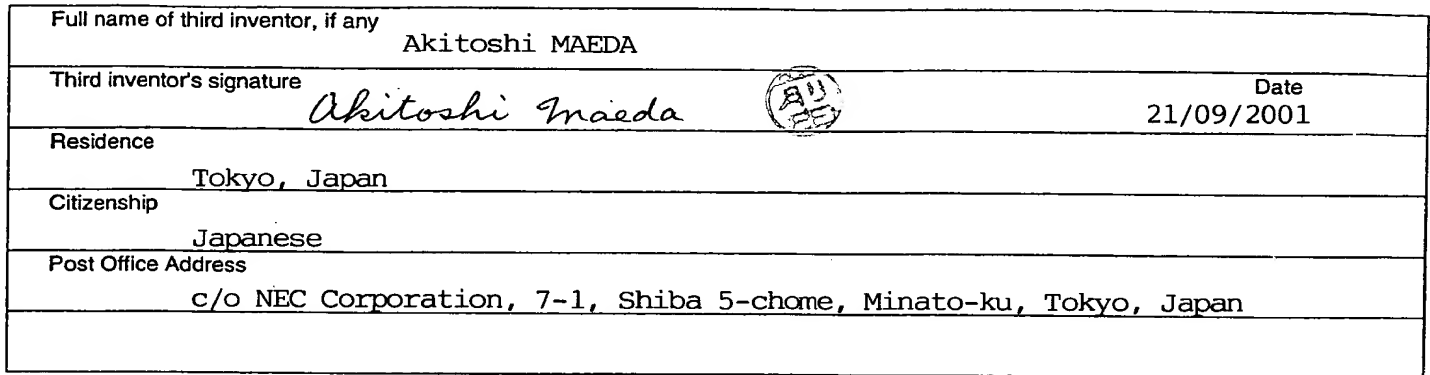 Full name of third inventor, if any
Akitoshi MAEDA
Third inventor's signature
Akitoshi Maeda
Date
21/09/2001
Residence
Tokyo, Japan
Citizenship
Japanese
Post Office Address
c/o NEC Corporation, 7-1, Shiba 5-chome, Minato-ku, Tokyo, Japan